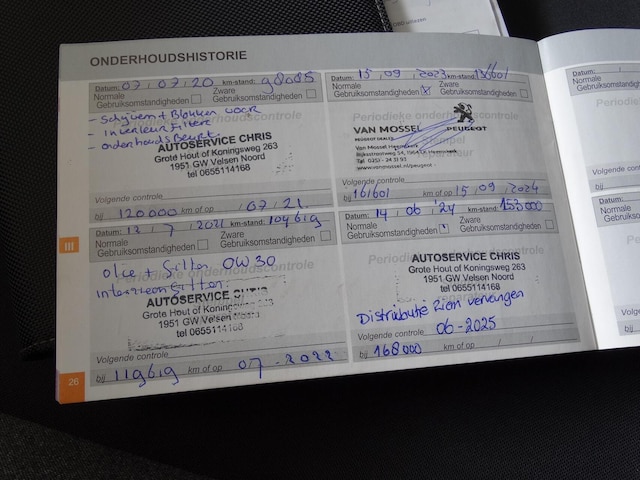 ONDERHOUDSHISTORIE
Datum: 07/07/20 km-stand: 98085
Normale
Gebruiksomstandigheden
Zware
Gebruiksomstandigheden
- Schijven + Blokken voor
- Interieur Filter
- onderhouds Beurt
AUTOSERVICE CHRIS
Grote Hout of Koningsweg 263
1951 GW Velsen Noord
tel 0655114168
Volgende controle
bij 120000 km of op / 07 / 21
Datum: 15/09/2023 km-stand:
Normale
Gebruiksomstandigheden X
Zware
Gebruiksomstandigheden
Periodieke onderhoudscontrole
VAN MOSSEL
PEUGEOT DEALER
PEUGEOT
Van Mossel Heemskerk
Tel 0251 - 24 31 93
www.vanmossel.nl/peugeot
Volgende controle
bij 161601 km of op 15/09/2024
III
Datum: 12/7/2021 km-stand: 104619
Normale
Gebruiksomstandigheden
Zware
Gebruiksomstandigheden
Periodieke onderhoudscontrole
Olie + Filter 0W30
Interieur Filter
AUTOSERVICE CHRIS
Grote Hout of Koningsweg
1951 GW Velsen Noord
tel 0655114168
Volgende controle
bij 119619 km of op 07-2022
Datum: 14/06/'24 km-stand: 153000
Normale
Gebruiksomstandigheden
Zware
Gebruiksomstandigheden
Periodieke onderhoudscontrole
AUTOSERVICE CHRIS
Grote Hout of Koningsweg 263
1951 GW Velsen Noord
tel 0655114168
Distributie Riem vervangen
Volgende controle 06-2025
bij 168000 km of op / /
26